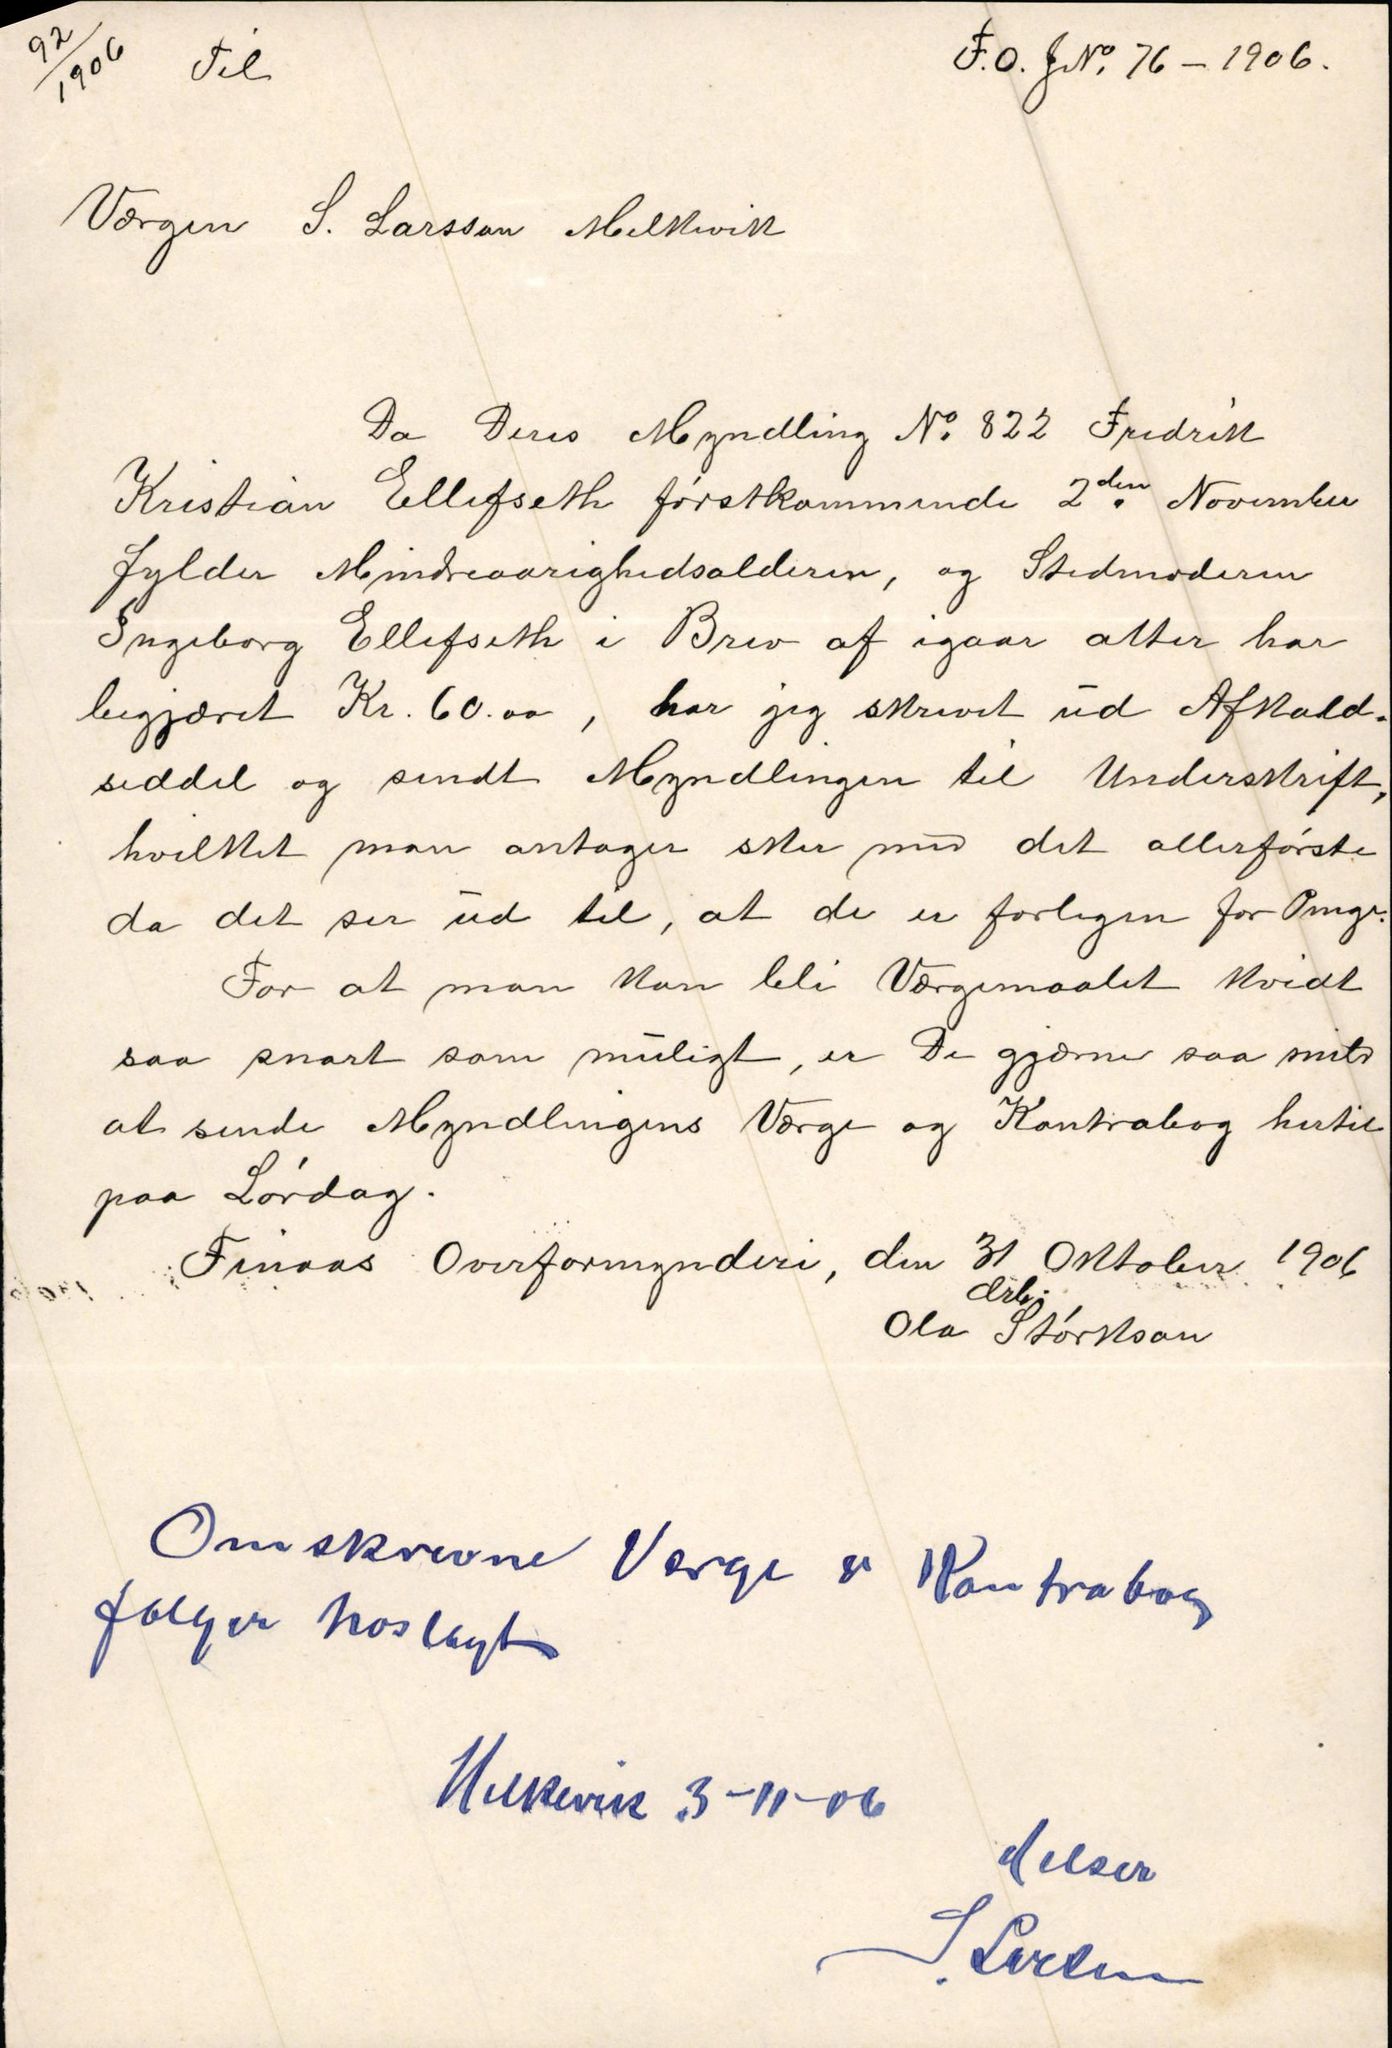 92/1906
Til
F.O. J.No. 76 – 1906.
Værgen S. Larsson Melkevik
Da Deres Myndling No. 822 Fredrik
Kristian Ellefseth førstkommende 2den November
fylder Mindreaarighedsalderen, og Stedmoderen
Ingeborg Ellefseth i Brev af igaar atter har
begjæret Kr. 60.00, har jeg skrevet ud Afkald-
seddel og sendt Myndlingen til Underskrift,
hvilket man antager sker med det allerførste
da det ser ud til, at de er forlegen for Penge.
For at man kan bli Værgemaalet kvidt
saa snart som muligt, er De gjerne saa snild
at sende Myndlingens Værge og Kontrabog hertil
paa Lørdag.
Finaas Overformynderi, den 31 Oktober 1906
drb.
Ola Størkson
Omskrevne Værge & Kontrabog
følger hoslagt
Melkevik 3-11-06
Helser
S. Larsen